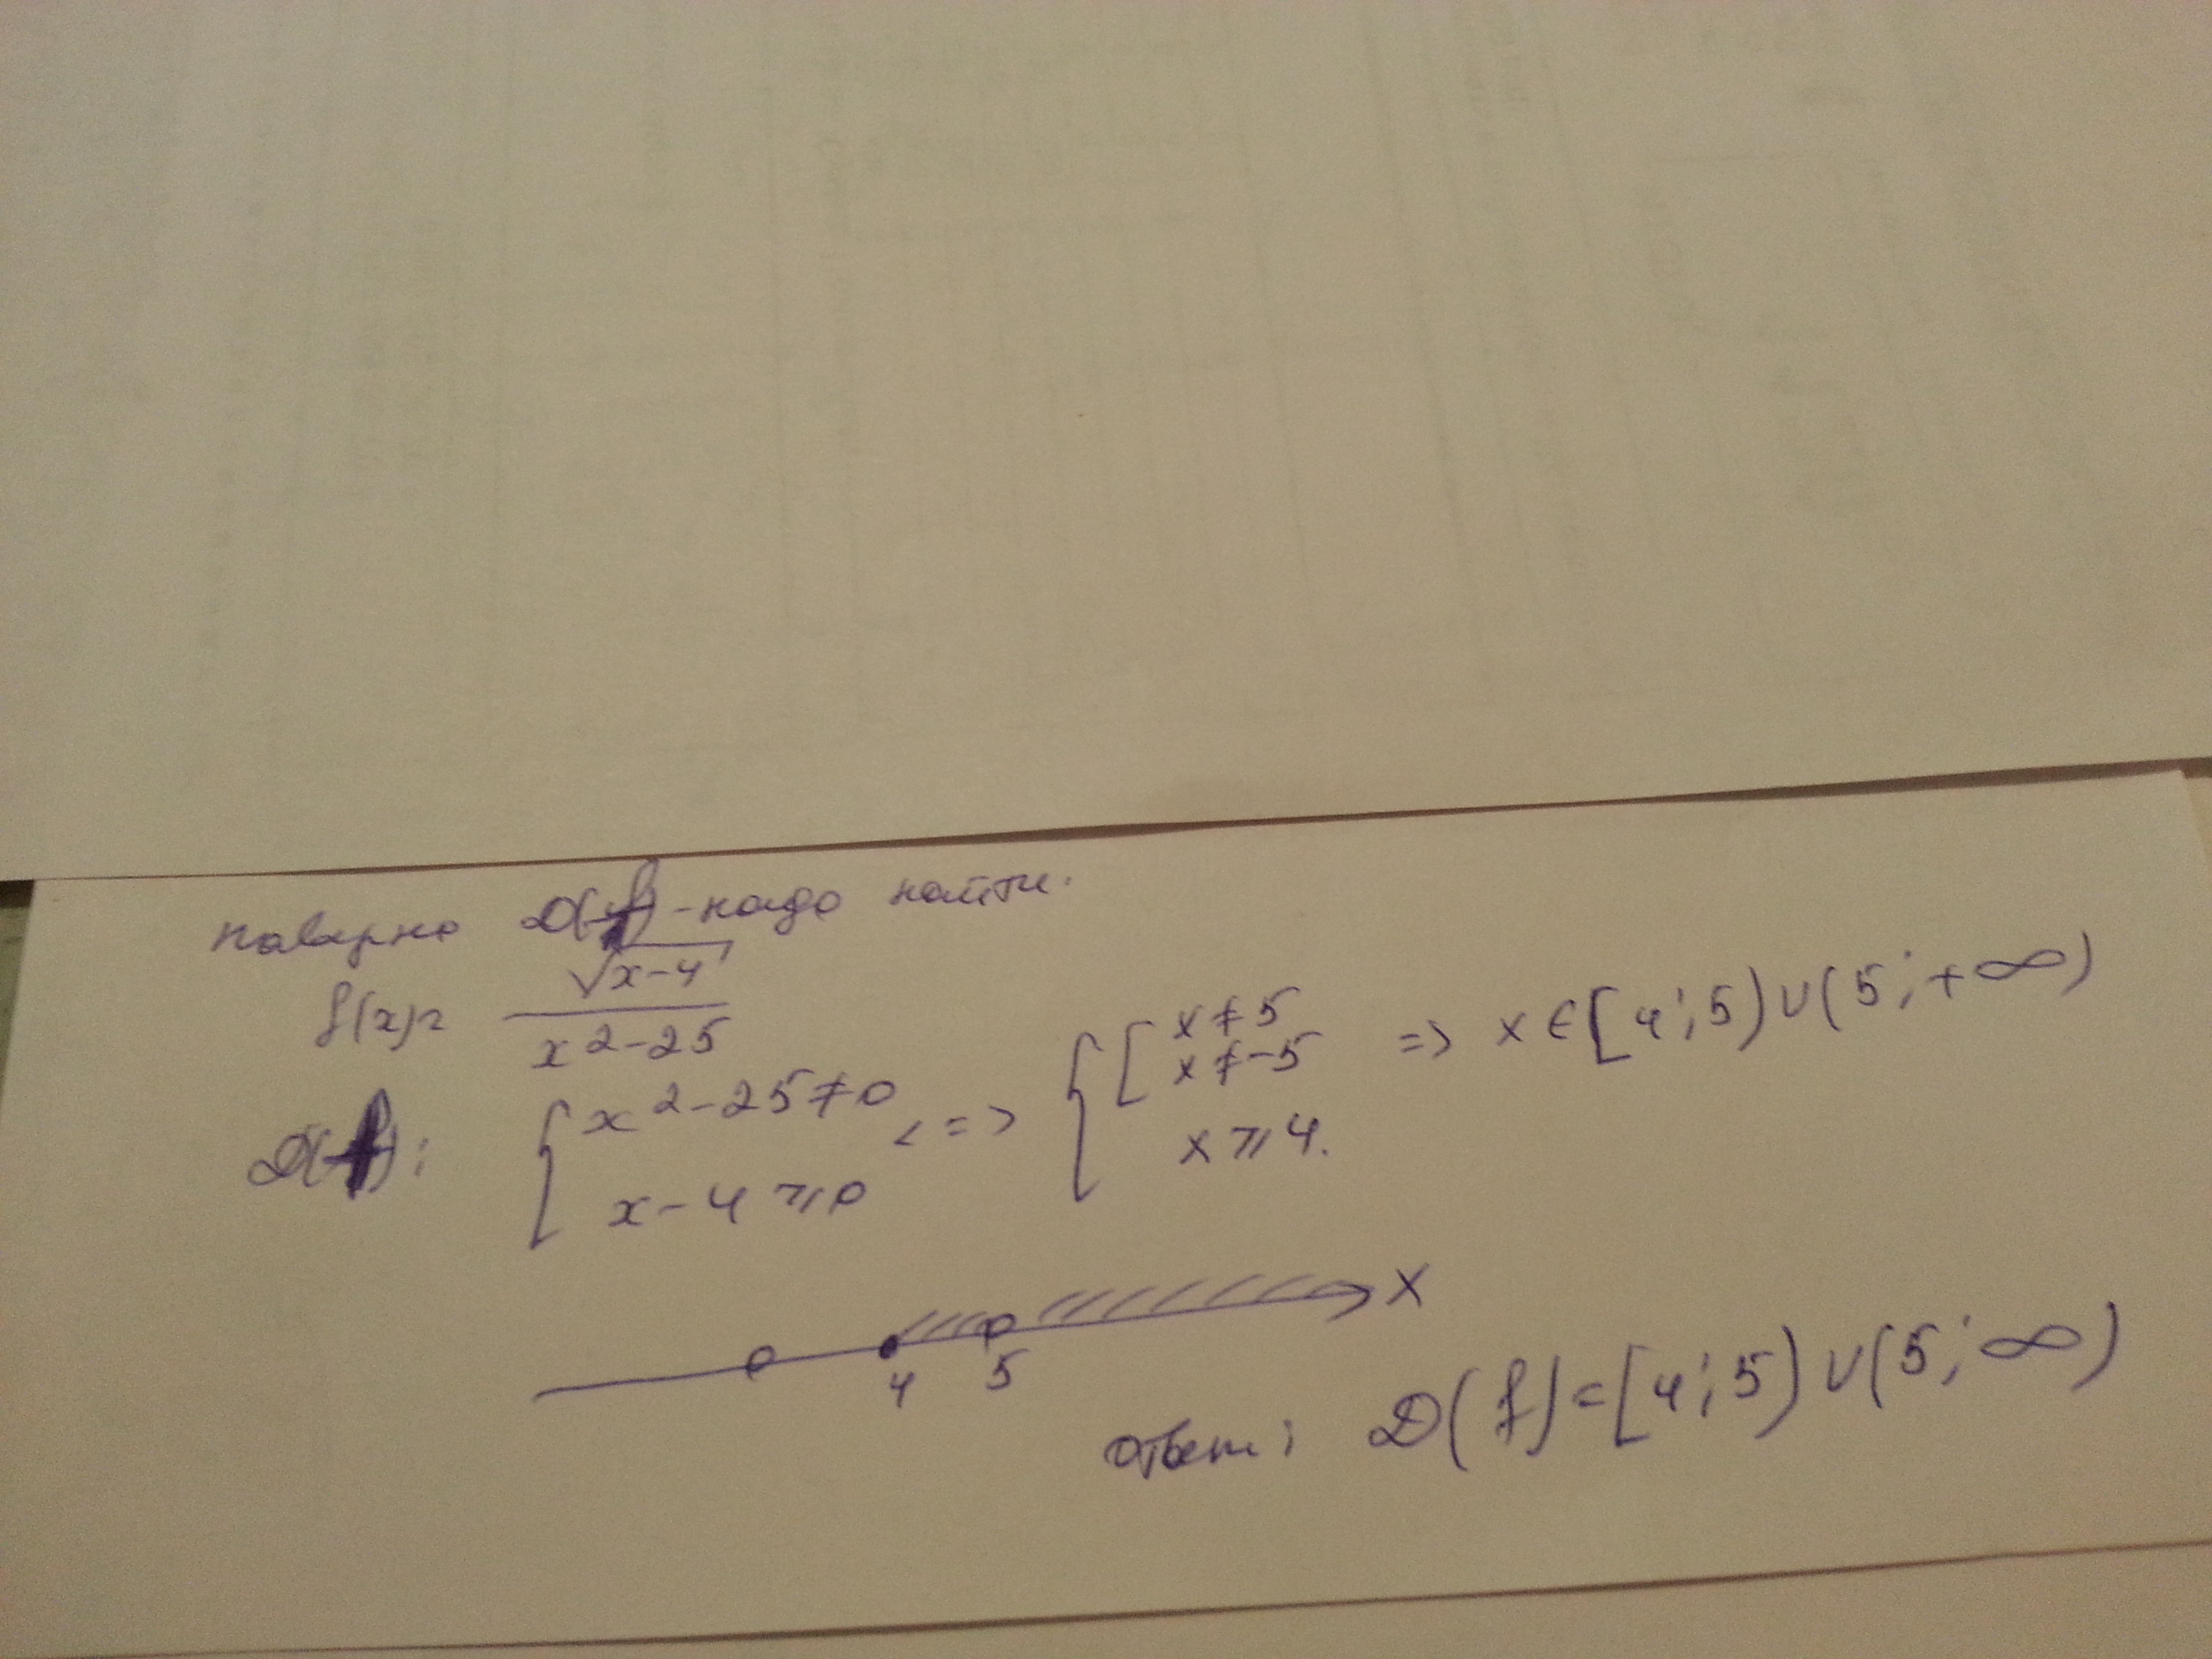 наверно D(f) - надо найти.
f(x)= √x-4 / x²-25
D(f): { x²-25≠0 x-4⩾0 <=> { [ x≠5 x≠-5 x⩾4. => x∈[4;5)∪(5;+∞)
4 5 x
ответ: D(f)=[4;5)∪(5;∞)